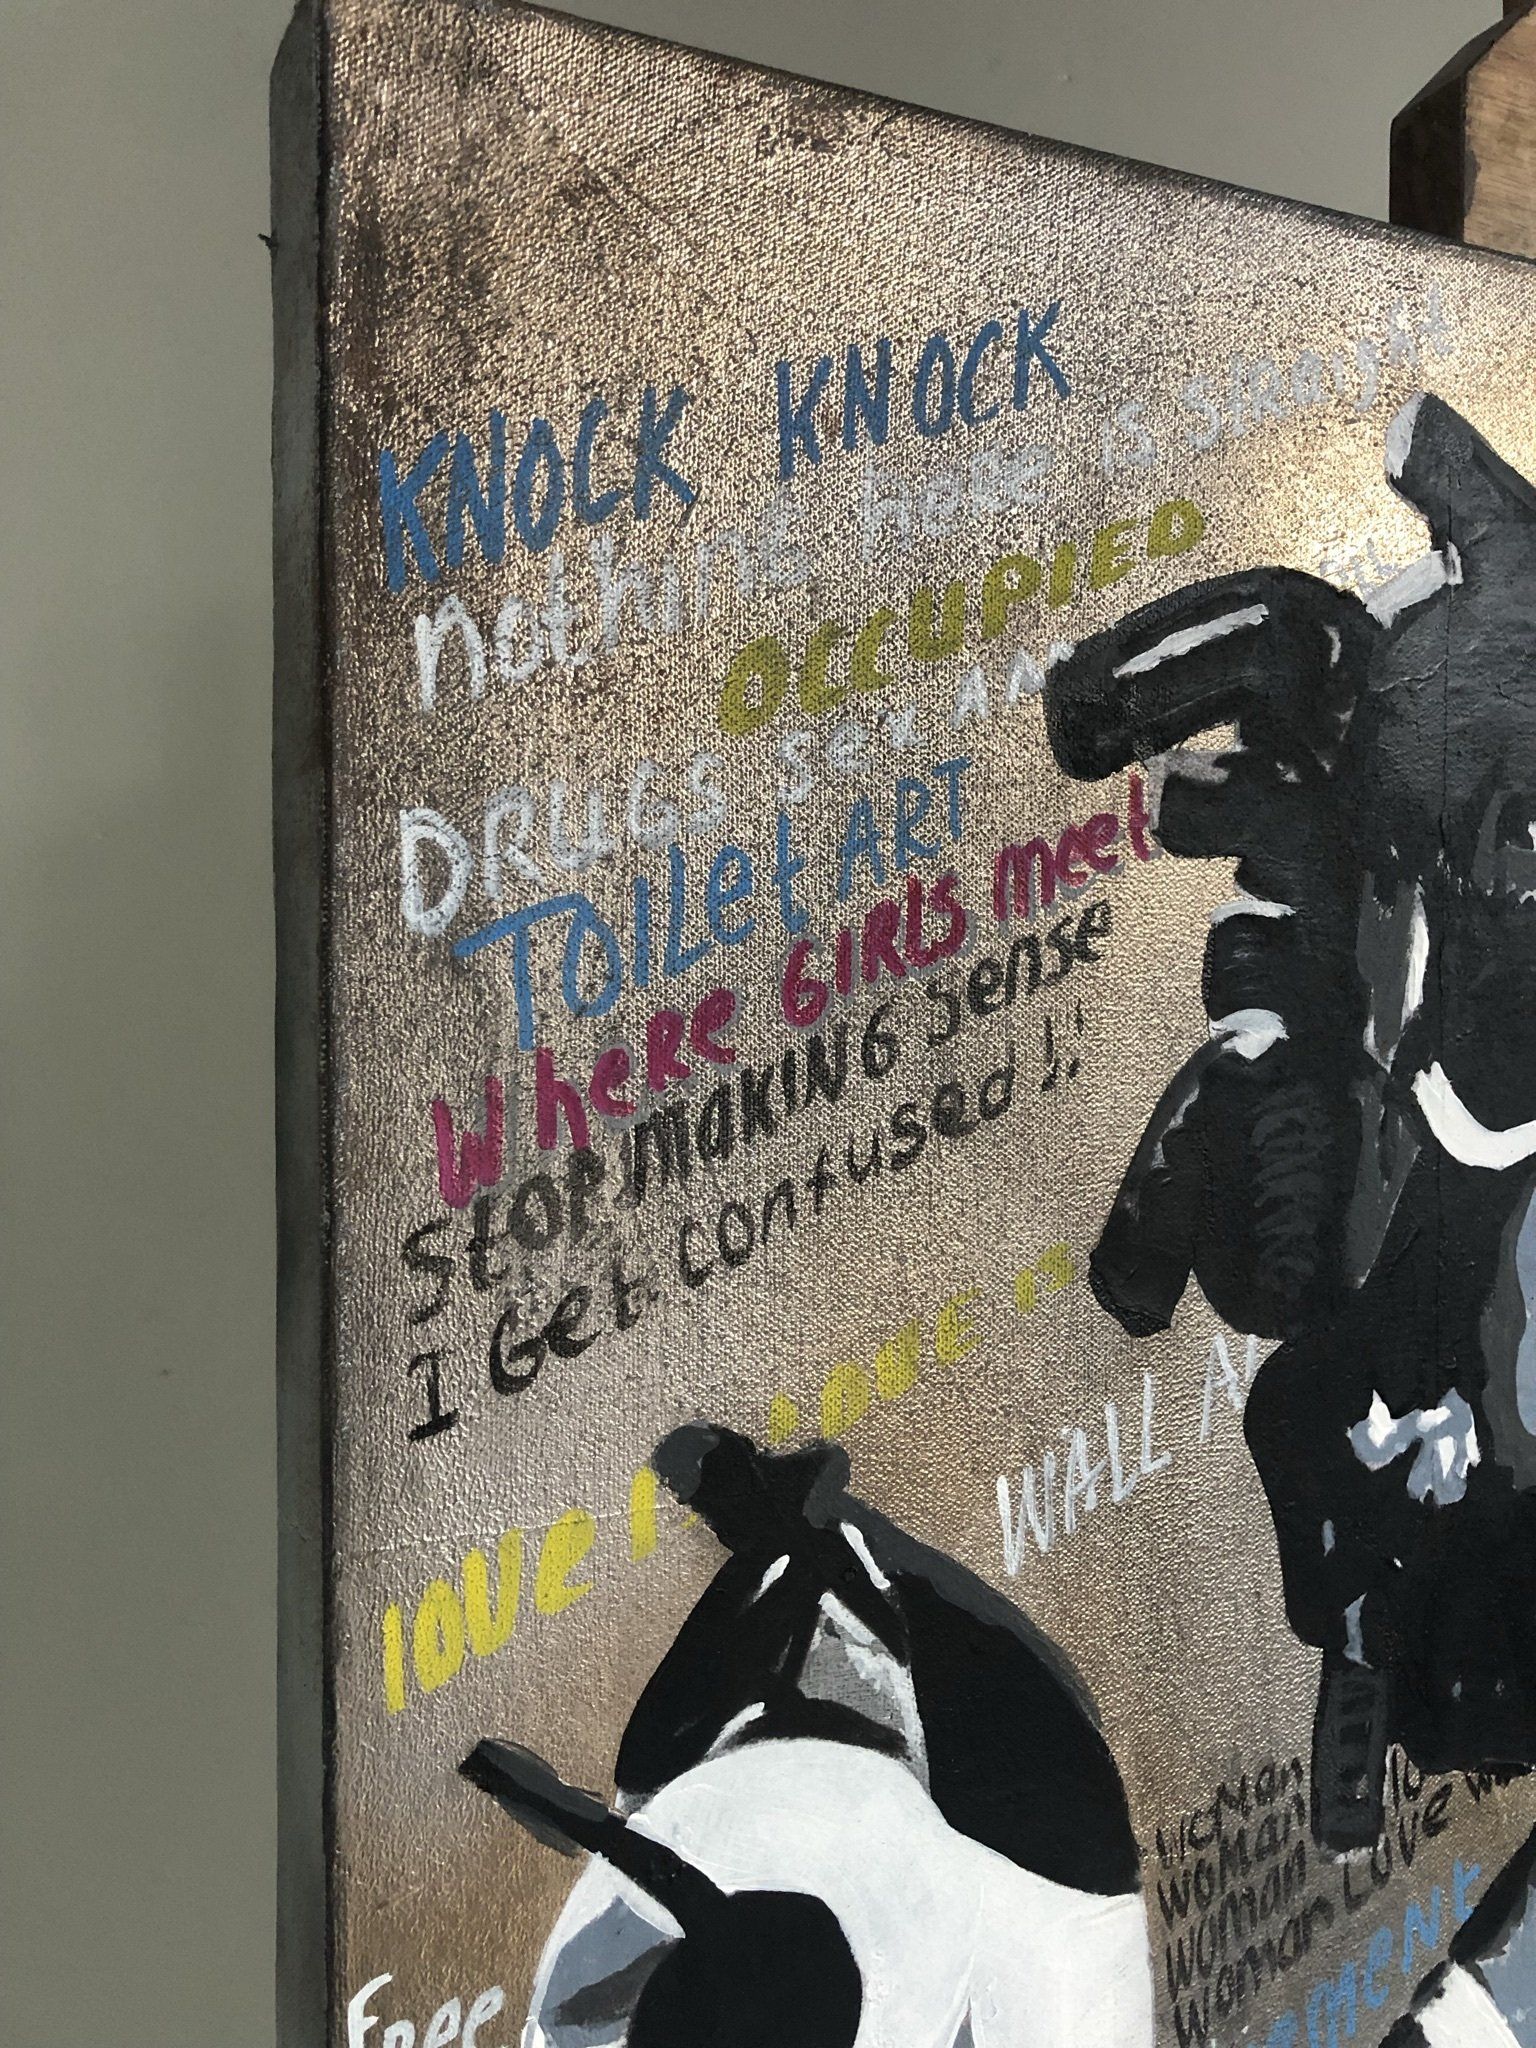 KNOCK KNOCK
nothing here is straight
OCCUPIED
DRUGS sex
TOILet ART
Where GIRLS Meet
StOP MAKING sense
I Get confused !!
lOVE IS
lOVE
WALL
WOMAN
WOMAN
WOMAN
WOMAN LOVE
Free